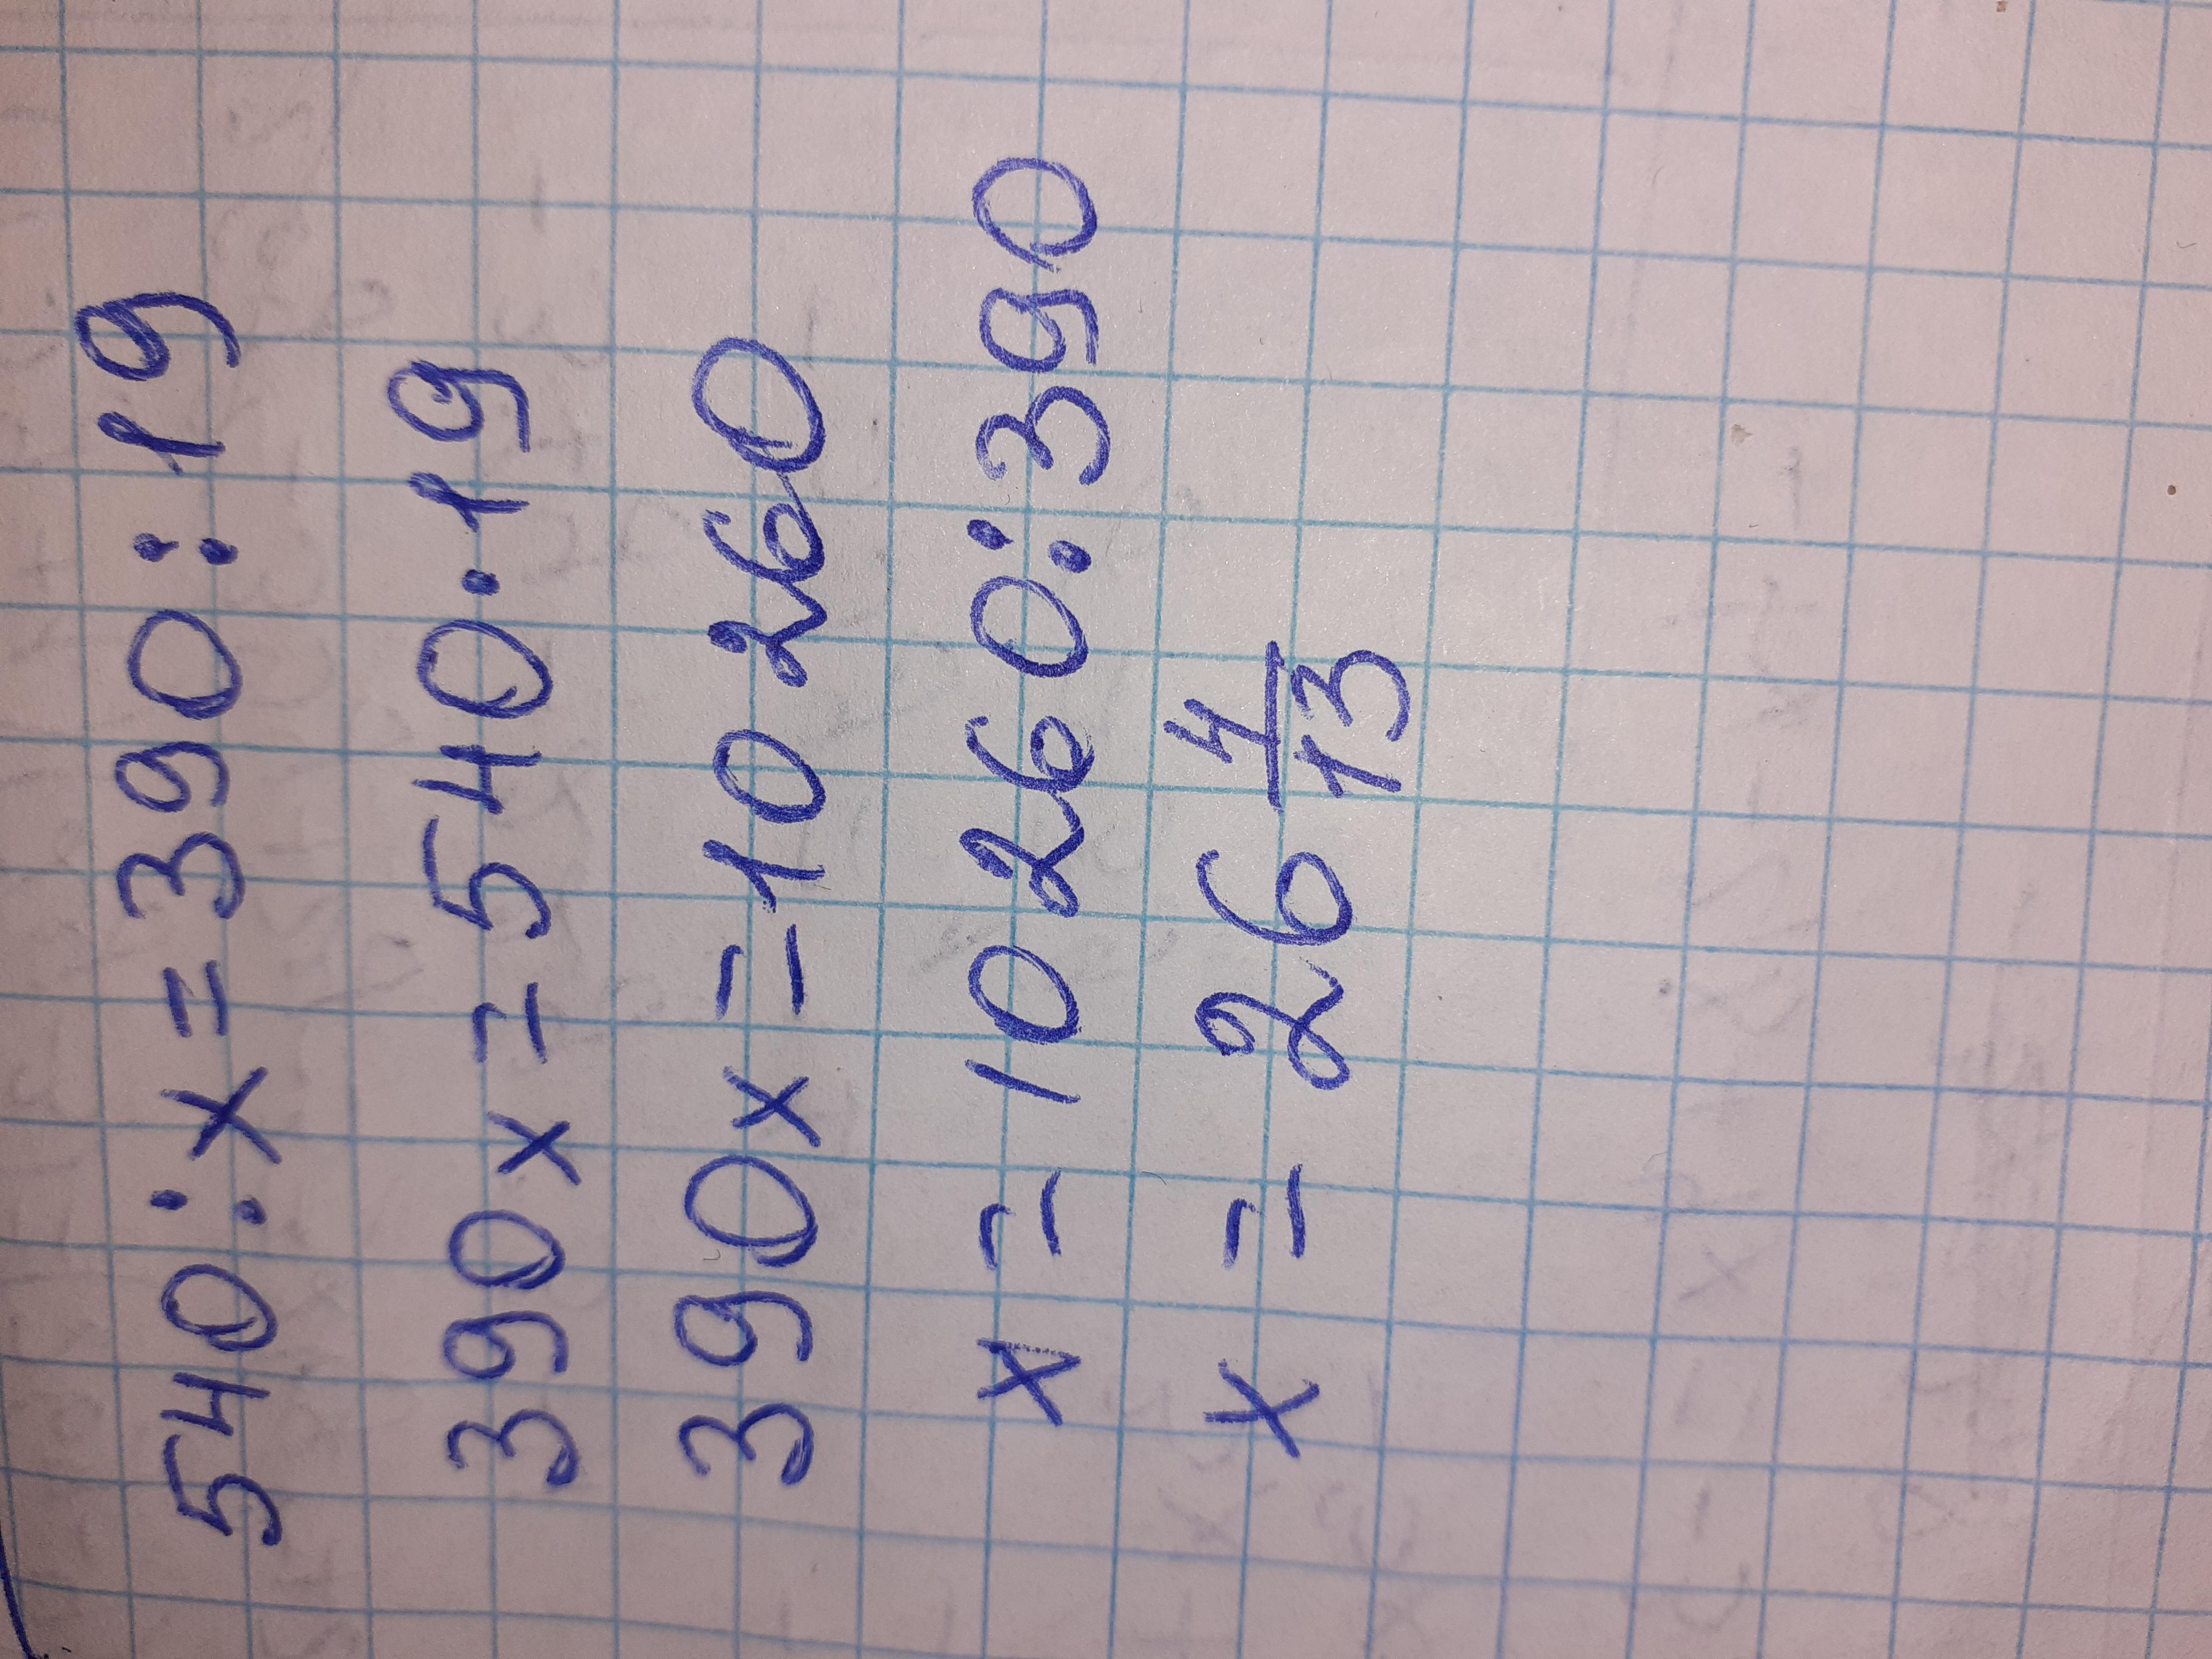 540:x=390:19
390x=540·19
390x=10260
x=10260:390
x=26 4/13